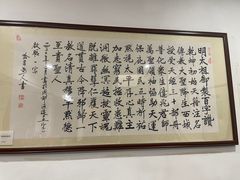 明太祖御製百字讚
乾坤初始天籍注名
傳教大聖降生西域
受授天經三十部冊
普化眾生億兆君師
萬聖領袖協助天運
保庇國民五時祈祐
默祝太平存心真主
加志窮民拯救患難
洞徹幽冥超拔靈魂
脫離罪孽仁覆天下
道貫古今降邪歸一
教名清真穆罕默德
至貴聖人